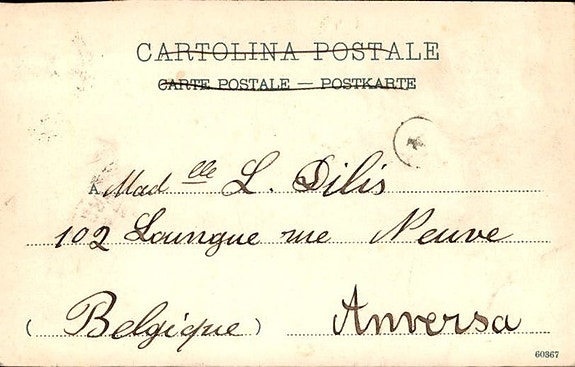 CARTOLINA POSTALE
CARTE POSTALE — POSTKARTE
A Mad elle L. Dilis
102 Loungue rue Neuve
(Belgique) Anversa
60367